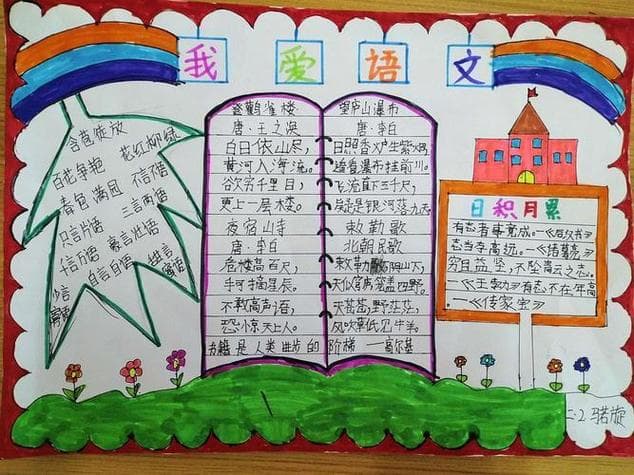 我爱语文
含苞待放
花红柳绿
百花争艳
不言不语
春色满园
三言两语
只言片语
豪言壮语
千言万语
自言自语
登鹳雀楼
唐·王之涣
白日依山尽，
黄河入海流。
欲穷千里目，
更上一层楼。
夜宿山寺
唐·李白
危楼高百尺，
手可摘星辰。
不敢高声语，
恐惊天上人。
望庐山瀑布
唐·李白
日照香炉生紫烟，
遥看瀑布挂前川。
飞流直下三千尺，
疑是银河落九天。
敕勒歌
北朝民歌
敕勒川阴山下，
天似穹庐笼盖四野。
天苍苍，野茫茫，
风吹草低见牛羊。
书籍是人类进步的阶梯——高尔基
日积月累
有志者事竟成。—《后汉书》
志当存高远。—《诸葛亮》
穷且益坚，不坠青云之志。
—《王勃》有志不在年高
—《传家宝》
二.2.马若旋